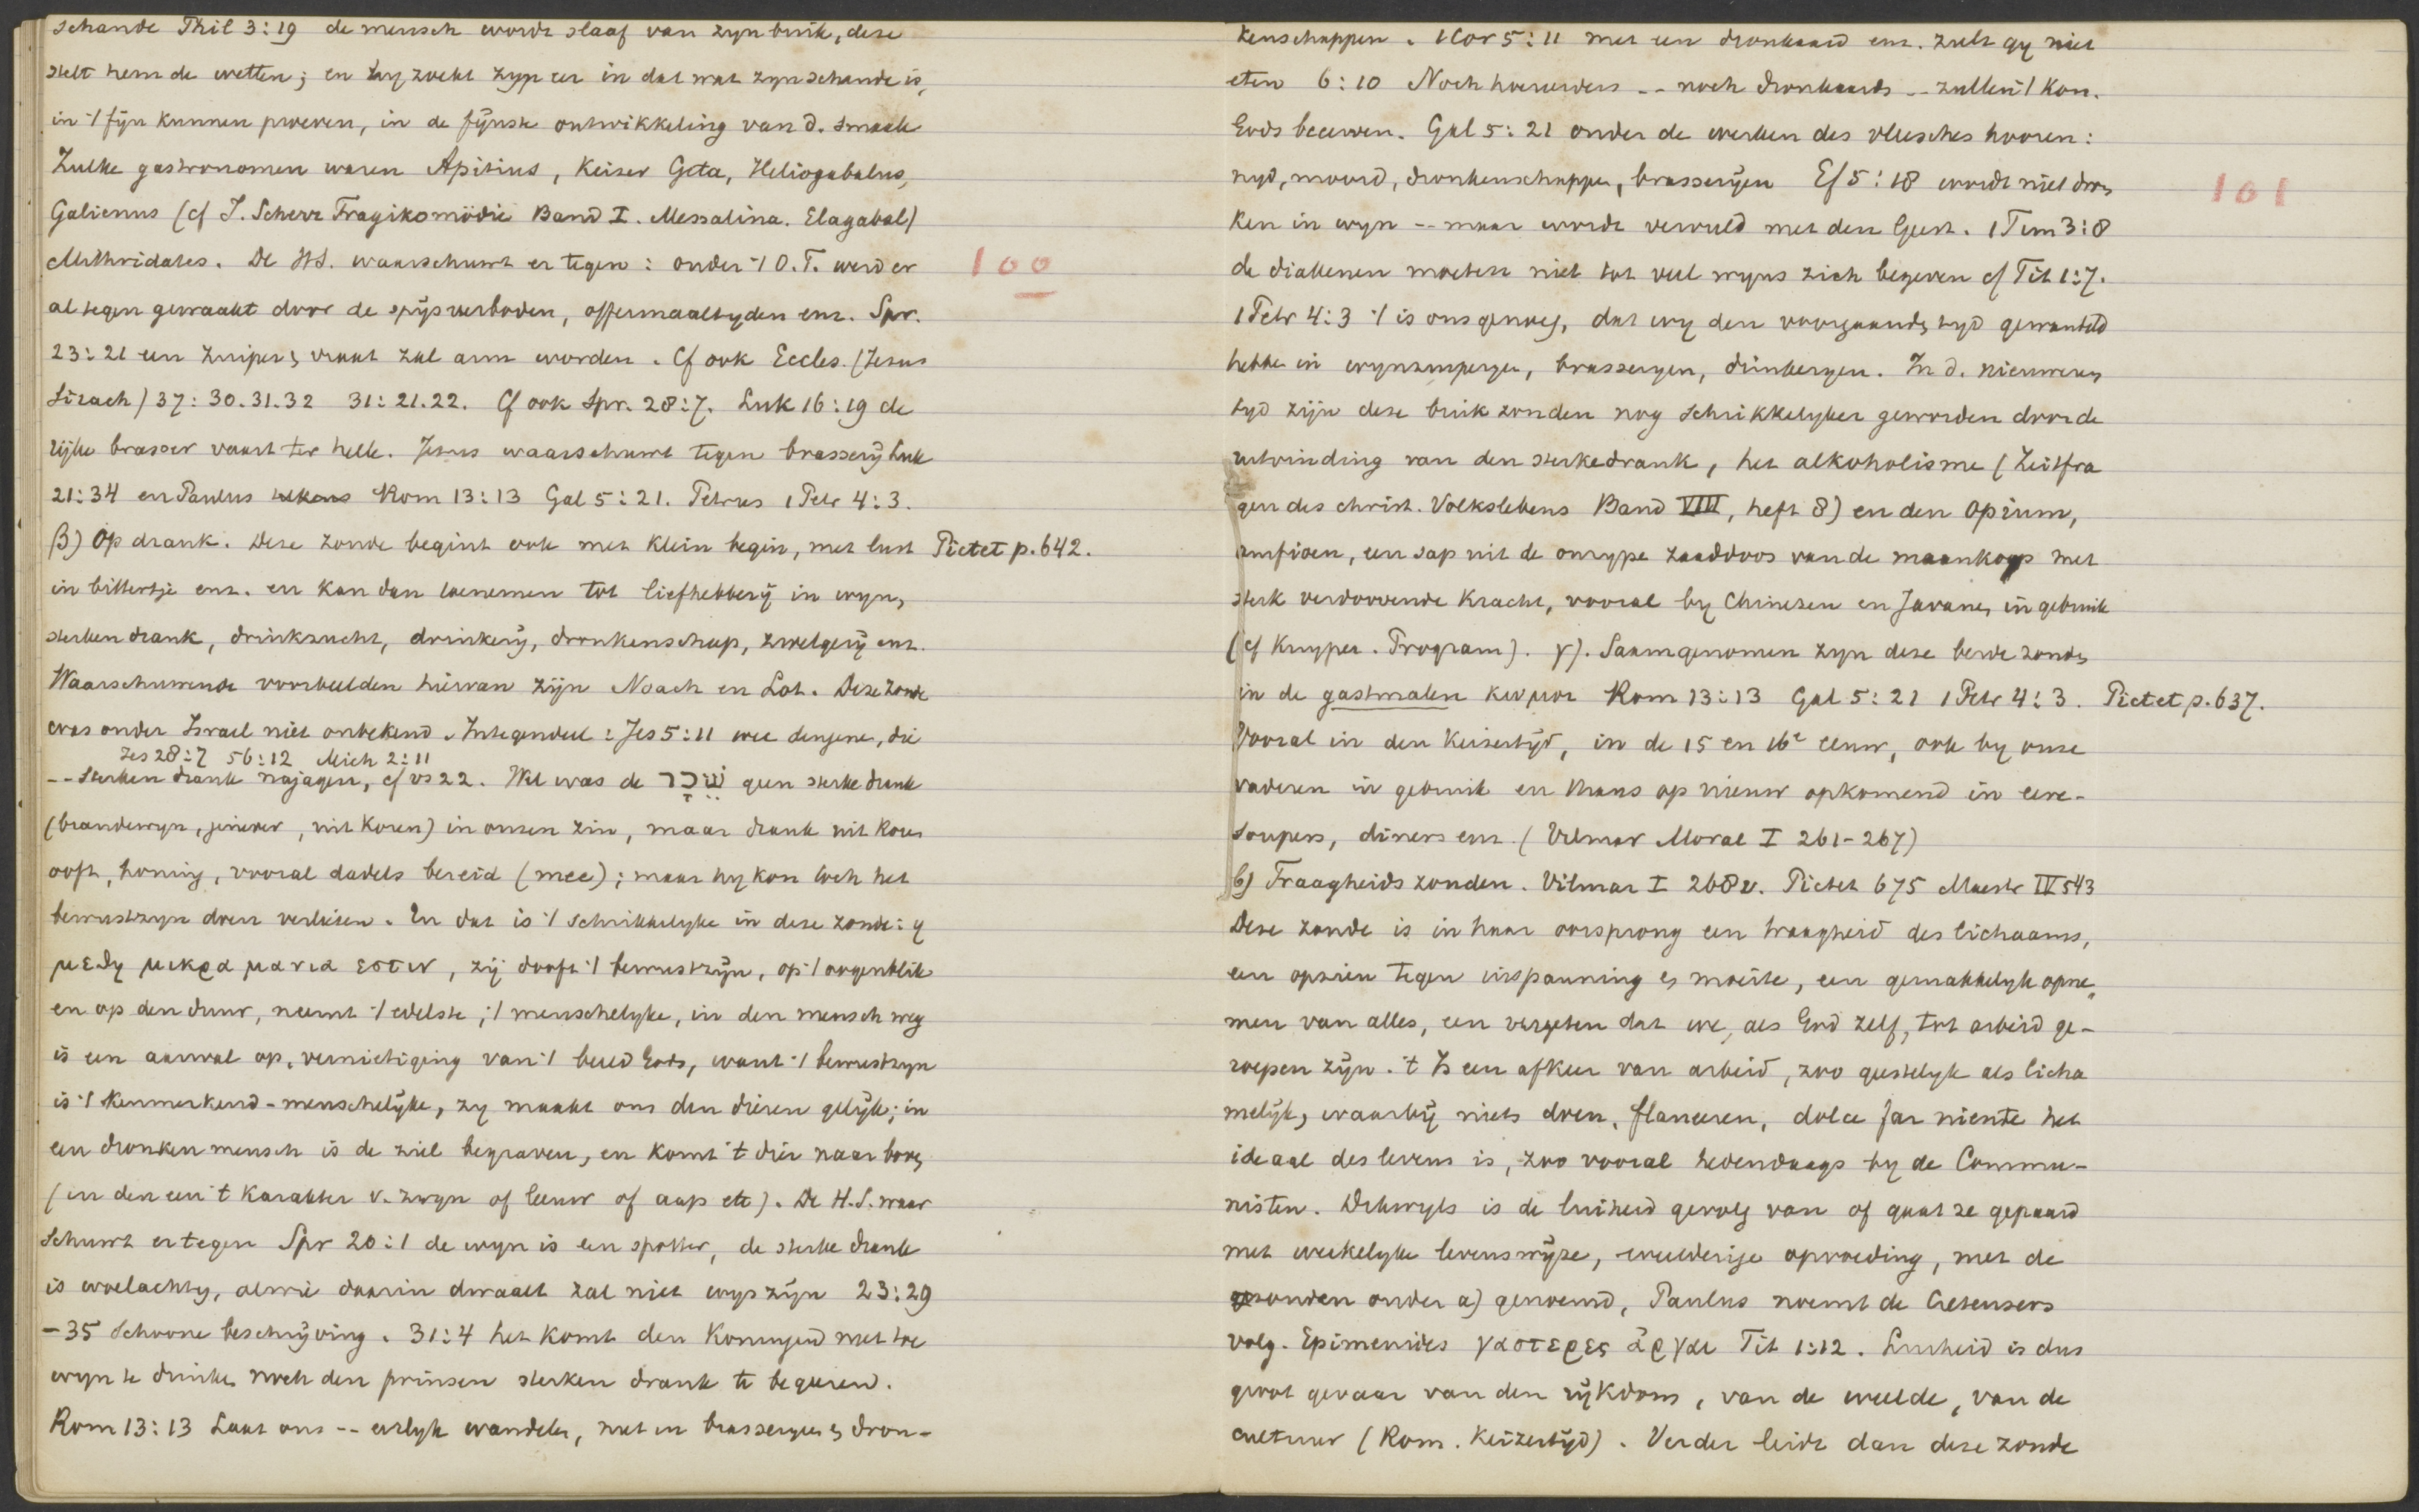 schande Phil 3:19 de mensch wordt slaaf van zyn buik, deze
stelt hem de wetten; en hy zoekt zyn eer in dat wat zyn schande is,
in 't fijn kunnen proeven, in de fijnste ontwikkeling van d. smaak
Zulke gastronomen waren Apitius, Keiser Geta, Heliogabalus,
Galienus (cf J. Scherr Tragikomödie Band I. Messalina. Elagabal)
Mithridates. De HS. waarschuwt er tegen: onder 't O.T. werd er
100
al tegen gewaakt door de spijsverboden, offermaaltyden enz. Spr.
23:21 een zuiper en vraat zal arm worden. Cf ook Eccles. (Jesus
Sirach) 37:30.31.32 31:21.22. Cf ook Spr. 28:7. Luk 16:19 de
rijke brasser vaart ter helle. Jezus waarschuwt tegen brassery Luk
21:34 en Paulus Rom 13:13 Gal 5:21. Petrus 1 Petr 4:3.
β) Op drank. Deze zonde begint ook met klein begin, met lust Pictet p. 642.
in bittertje enz. en kan dan toenemen tot liefhebberij in wyn,
sterken drank, drinkzucht, drinkerij, dronkenschap, zwelgerij enz.
Waarschuwende voorbeelden hiervan zijn Noach en Lot. Deze zonde
was onder Israel niet onbekend. Integendeel: Jes 5:11 wee dengene, die
Jes 28:7 56:12 Mich 2:11
-- sterken drank najagen, cf vs 22. Wel was de שֵׁכָר geen sterke drank
(brandewyn, jenever, uit koren) in onzen zin, maar drank uit koren
ooft, honing, vooral dadels bereid (mee); maar hy kon toch het
bewustzyn doen verliezen. En dat is 't schrikkelyke in deze zonde: ἡ
μεθη μικρα μανια εστιν, zij dooft 't bewustzijn, op 't oogenblik
en op den duur, neemt 't edelste, 't menschelyke, in den mensch weg
is een aanval op, vernietiging van 't beeld Gods, want 't bewustzyn
is 't kenmerkend-menschelijke, zy maakt ons den dieren gelijk; in
een dronken mensch is de ziel begraven, en komt 't dier naar boven
(in den een 't karakter v. zwyn of leeuw of aap etc). De H.S. waar
schuwt ertegen Spr 20:1 de wyn is een spotter, de sterke drank
is woelachtig, al wie daarin dwaalt zal niet wys zijn 23:29
-35 Schoone beschrijving. 31:4 het komt den Koningen niet toe
wyn te drinken noch den prinsen sterken drank te begeeren.
Rom 13:13 Laat ons -- eerlyk wandelen, niet in brasseryen en dron-
kenschappen. 1 Cor 5:11 met een dronkaard enz. zult gy niet
eten 6:10 Noch hoereerders -- noch dronkaards -- zullen 't Kon.
Gods beerven. Gal 5:21 onder de werken des vleesches hooren:
nyd, moord, dronkenschappen, brasserijen Ef 5:18 wordt niet dron
101
ken in wyn -- maar wordt vervuld met den Geest. 1 Tim 3:8
de diakenen moeten niet tot veel wyns zich begeven cf Tit 1:7.
1 Petr 4:3 't is ons genoeg, dat wy den voorgaanden tyd gewandeld
hebben in wynzuiperyen, brasseryen, drinkeryen. In d. nieuweren
tyd zijn deze buikzonden nog schrikkelyker geworden door de
uitvinding van den sterkedrank, het alkoholisme (Zeitfra
gen des christ. Volkslebens Band VIII, heft 8) en den Opium,
amfioen, een sap uit de onrype zaaddoos van de maankop met
sterk verdoovende kracht, vooral by Chinezen en Javanen in gebruik
(cf Kuyper. Program). γ). Saamgenomen zyn deze beide zonden
in de gastmalen κωμοι Rom 13:13 Gal 5:21 1 Petr 4:3. Pictet p. 637.
Vooral in den Keisertijd, in de 15 en 16e eeuw, ook by onze
vaderen in gebruik en thans op nieuw opkomend in eere-
soupers, diners enz. (Vilmar Moral I 261-267)
b) Traagheidszonden. Vilmar I 268v. Pictet 675 Maestr IV 543
Deze zonde is in haar oorsprong een traagheid des lichaams,
een opzien tegen inspanning en moeite, een gemakkelyk opne
men van alles, een vergeten dat we, als God zelf, tot arbeid ge-
roepen zijn. 't Is een afkeer van arbeid, zoo geestelyk als licha
melijk, waarbij niets doen, flaneeren, dolce far niente het
ideaal des levens is, zoo vooral hedendaags by de Commu-
nisten. Dikwyls is de luiheid gevolg van of gaat ze gepaard
met weekelyke levenswijze, weelderige opvoeding, met de
zonden onder a) genoemd, Paulus noemt de Cretensers
volg. Epimenides γαστερες ἀργαι Tit 1:12. Luiheid is dus
groot gevaar van den rijkdom, van de weelde, van de
cultuur (Rom. Keizertijd). Verder leidt dan deze zonde